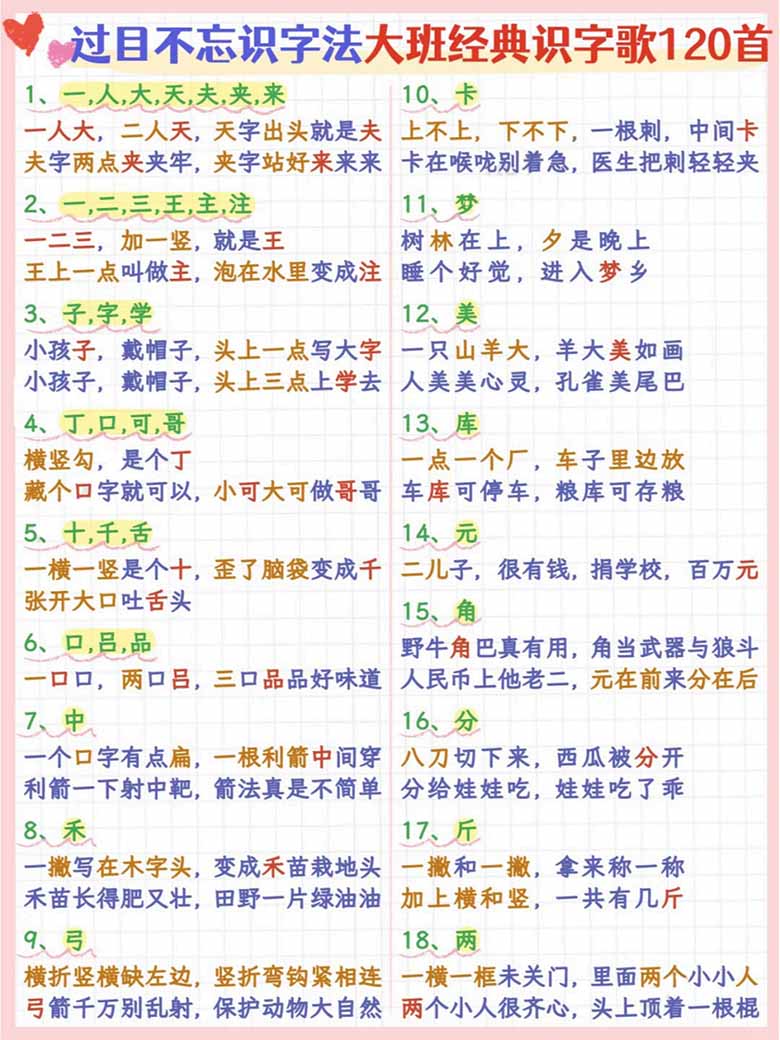 过目不忘识字法大班经典识字歌120首
1、一,人,大,天,夫,夹,来
一人大，二人天，天字出头就是夫
夫字两点夹夹牢，夹字站好来来来
2、一,二,三,王,主,注
一二三，加一竖，就是王
王上一点叫做主，泡在水里变成注
3、子,字,学
小孩子，戴帽子，头上一点写大字
小孩子，戴帽子，头上三点上学去
4、丁,口,可,哥
横竖勾，是个丁
藏个口字就可以，小可大可做哥哥
5、十,千,舌
一横一竖是个十，歪了脑袋变成千
张开大口吐舌头
6、口,吕,品
一口口，两口吕，三口品品好味道
7、中
一个口字有点扁，一根利箭中间穿
利箭一下射中靶，箭法真是不简单
8、禾
一撇写在木字头，变成禾苗栽地头
禾苗长得肥又壮，田野一片绿油油
9、弓
横折竖横缺左边，竖折弯钩紧相连
弓箭千万别乱射，保护动物大自然
10、卡
上不上，下不下，一根刺，中间卡
卡在喉咙别着急，医生把刺轻轻夹
11、梦
树林在上，夕是晚上
睡个好觉，进入梦乡
12、美
一只山羊大，羊大美如画
人美美心灵，孔雀美尾巴
13、库
一点一个厂，车子里边放
车库可停车，粮库可存粮
14、元
二儿子，很有钱，捐学校，百万元
15、角
野牛角巴真有用，角当武器与狼斗
人民币上他老二，元在前来分在后
16、分
八刀切下来，西瓜被分开
分给娃娃吃，娃娃吃了乖
17、斤
一撇和一撇，拿来称一称
加上横和竖，一共有几斤
18、两
一横一框未关门，里面两个小小人
两个小人很齐心，头上顶着一根棍